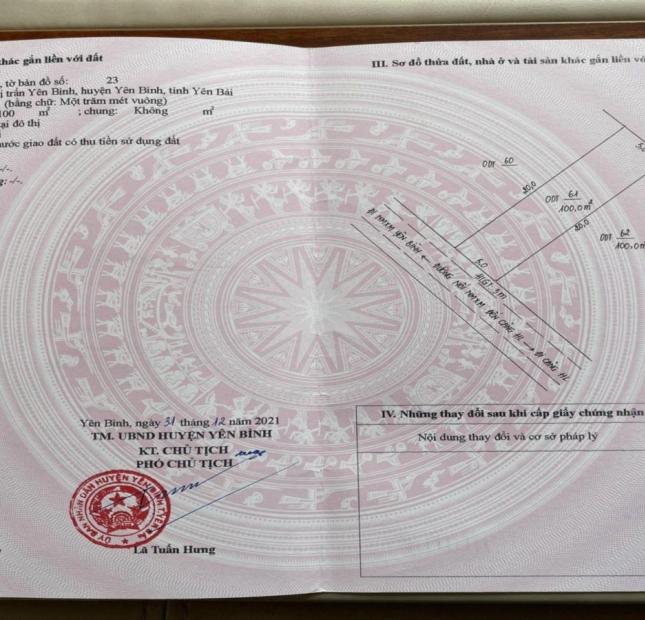 khác gắn liền với đất
, tờ bản đồ số: 23
trấn Yên Bình, huyện Yên Bình, tỉnh Yên Bái
(bằng chữ: Một trăm mét vuông)
100 m² ; chung: Không m²
tại đô thị
nước giao đất có thu tiền sử dụng đất
-/-.
g: -/-.
Yên Bình, ngày 31 tháng 12 năm 2021
TM. UBND HUYỆN YÊN BÌNH
KT. CHỦ TỊCH
PHÓ CHỦ TỊCH
ỦY BAN NHÂN DÂN HUYỆN YÊN BÌNH T.YÊN BÁI
Lã Tuấn Hưng
III. Sơ đồ thửa đất, nhà ở và tài sản khác gắn liền vớ
ODT 60
20,0
5,0
ODT 61
100,0 m²
20,0
ODT 62
100,0 m
5,0
HLGT 5m
ĐI NMXM YÊN BÌNH ← ĐƯỜNG NỐI NMXM ĐẾN CẢNG HL → ĐI CẢNG HL
IV. Những thay đổi sau khi cấp giấy chứng nhận
Nội dung thay đổi và cơ sở pháp lý